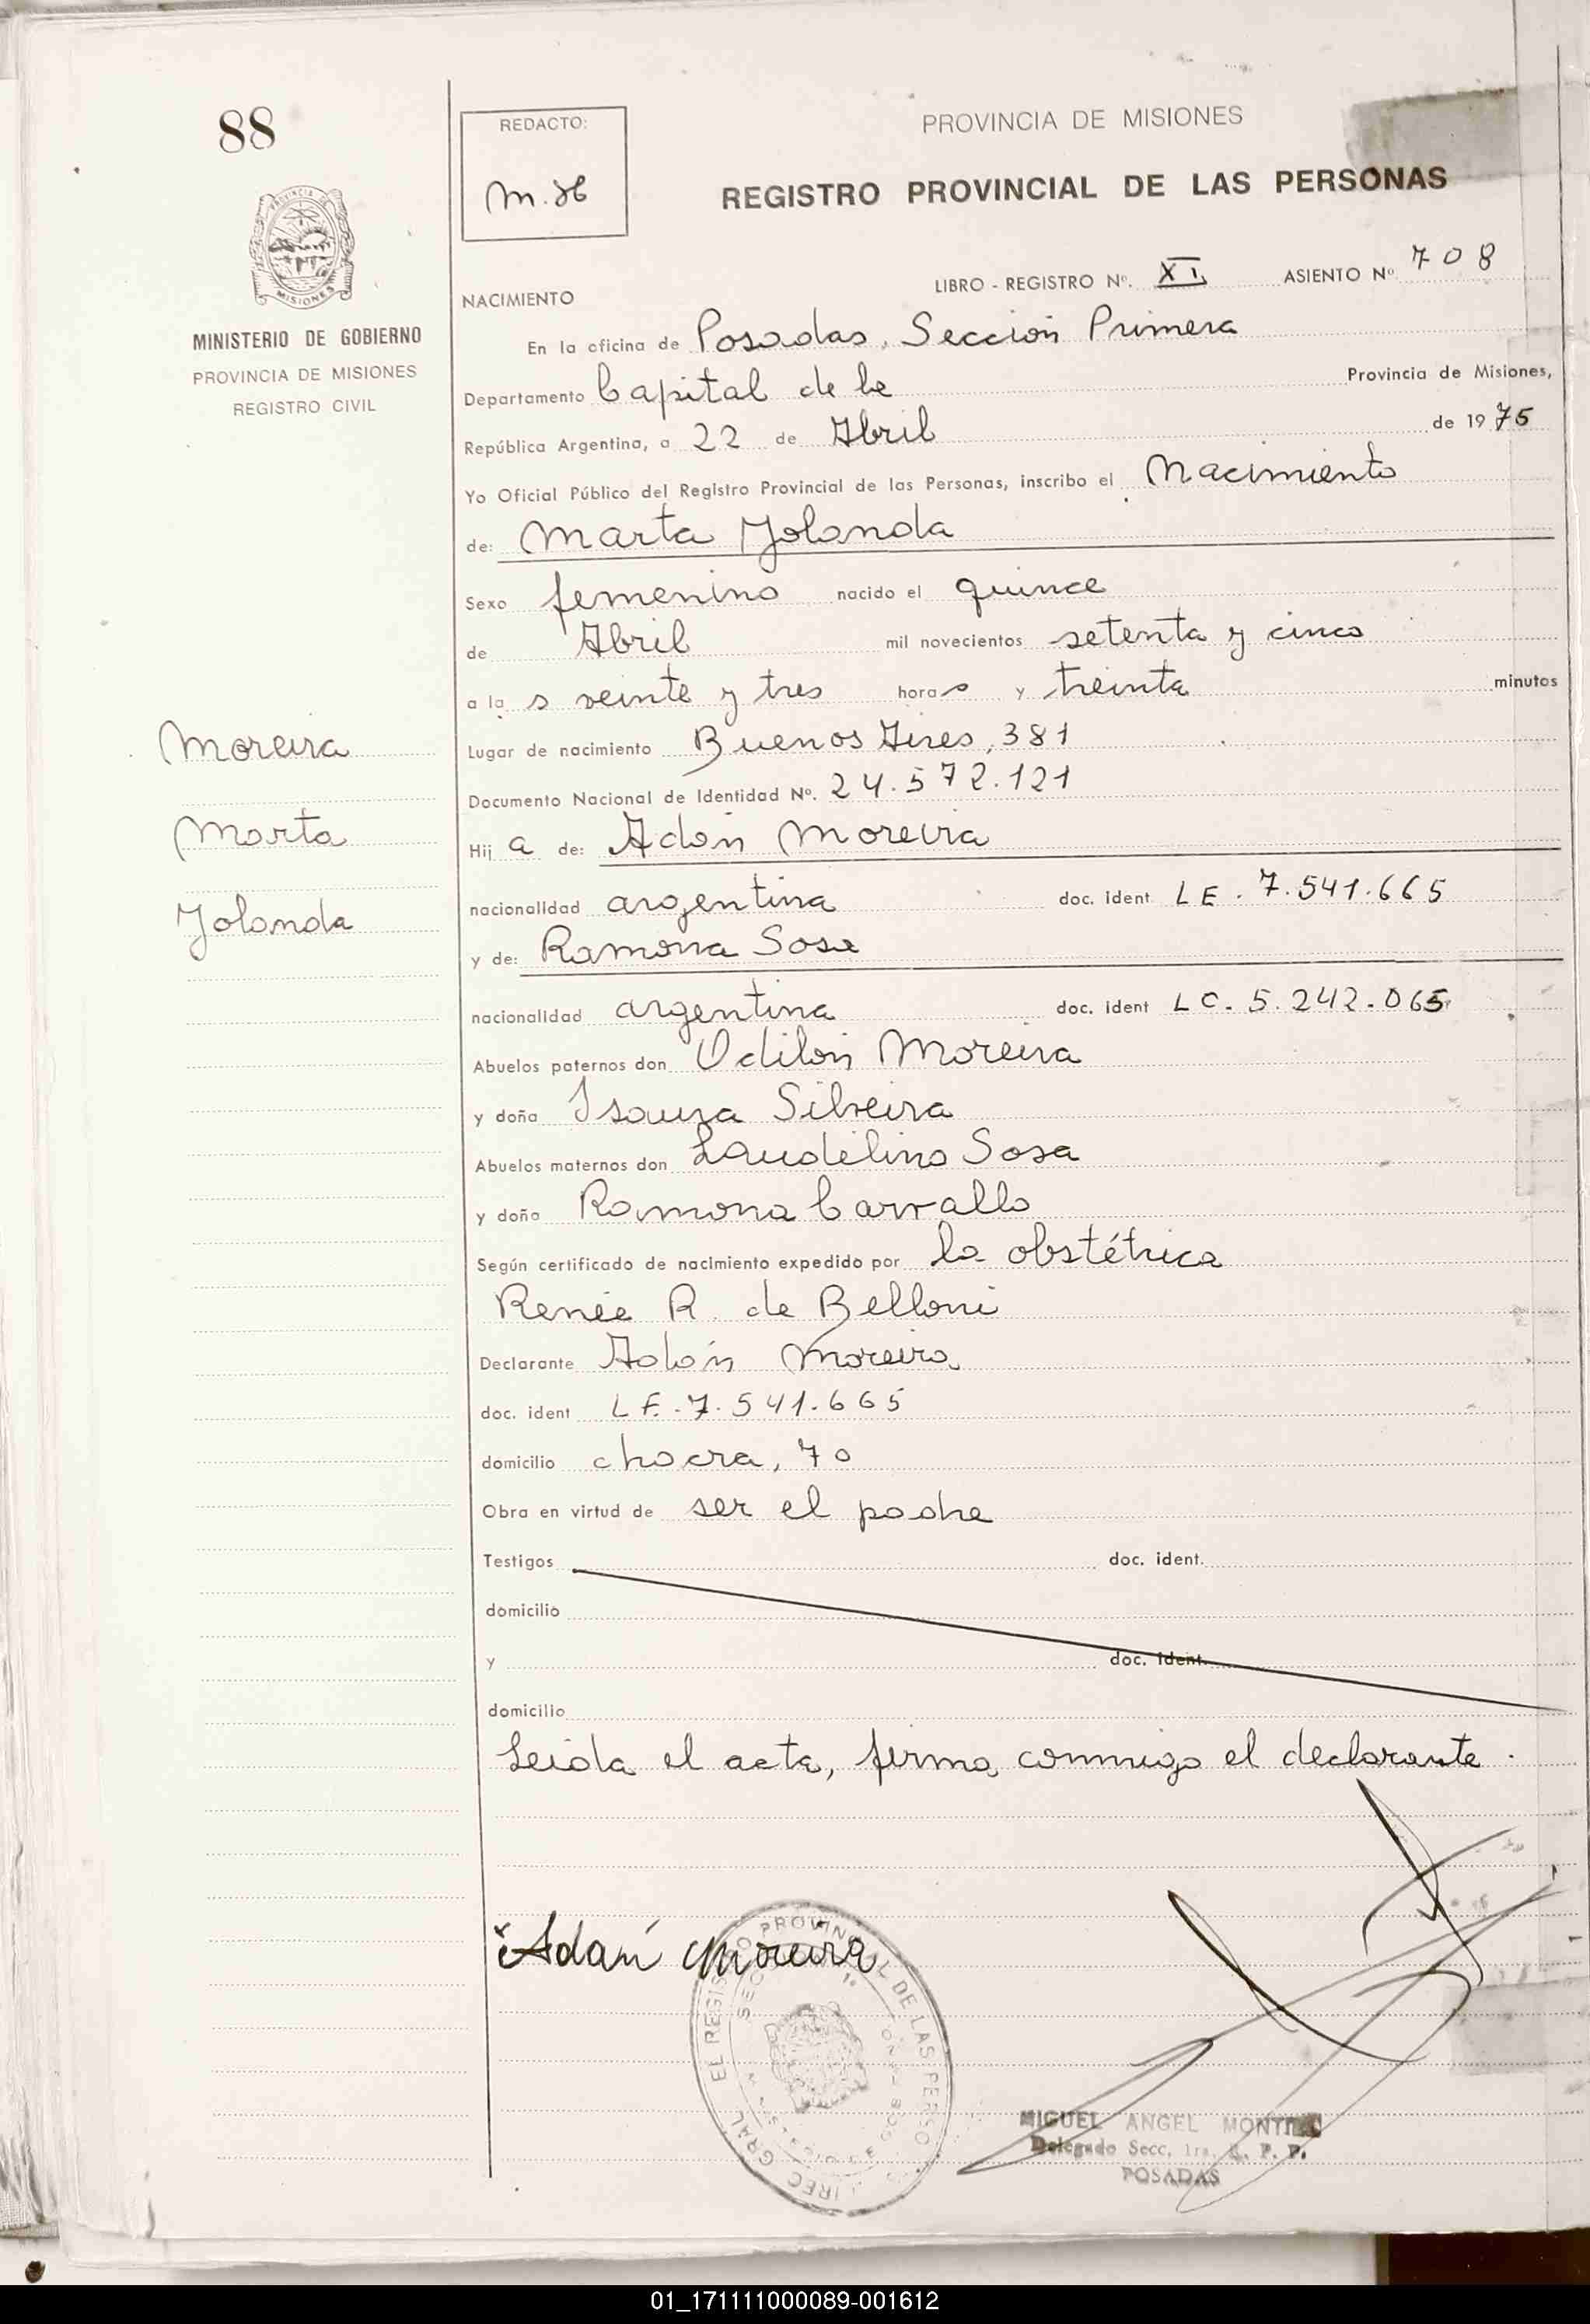 88
REDACTO:
M.H
PROVINCIA DE MISIONES
REGISTRO PROVINCIAL DE LAS PERSONAS
PROVINCIA
MISIONES
MINISTERIO DE GOBIERNO
PROVINCIA DE MISIONES
REGISTRO CIVIL
LIBRO - REGISTRO Nº. XI ASIENTO Nº 708
NACIMIENTO
En la oficina de Posadas, Sección Primera
Departamento Capital de la Provincia de Misiones,
República Argentina, a 22 de Abril de 1975
Yo Oficial Público del Registro Provincial de las Personas, inscribo el Nacimiento
de: Marta Yolanda
Sexo femenino nacido el quince
de Abril mil novecientos setenta y cinco
a la s veinte y tres horas y treinta minutos
Moreira
Lugar de nacimiento Buenos Aires, 381
Documento Nacional de Identidad Nº. 24.572.121
Marta
Hij a de: Adán Moreira
Yolanda
nacionalidad argentina doc. ident LE. 7.541.665
y de: Ramona Sosa
nacionalidad argentina doc. ident LC. 5.242.065
Abuelos paternos don Odilón Moreira
y doña Isaura Silveira
Abuelos maternos don Laudelino Sosa
y doña Ramona Carvallo
Según certificado de nacimiento expedido por la obstétrica
Renée R. de Belloni
Declarante Adán Moreira
doc. ident LE.-7.541.665
domicilio chacra, 70
Obra en virtud de ser el padre
Testigos doc. ident.
domicilio
y doc. ident.
domicilio
Leída el acta, firma conmigo el declarante.
Adán Moreira
MIGUEL ANGEL
Delegado Secc. 1ra. R. P. P.
POSADAS
01_171111000089-001612